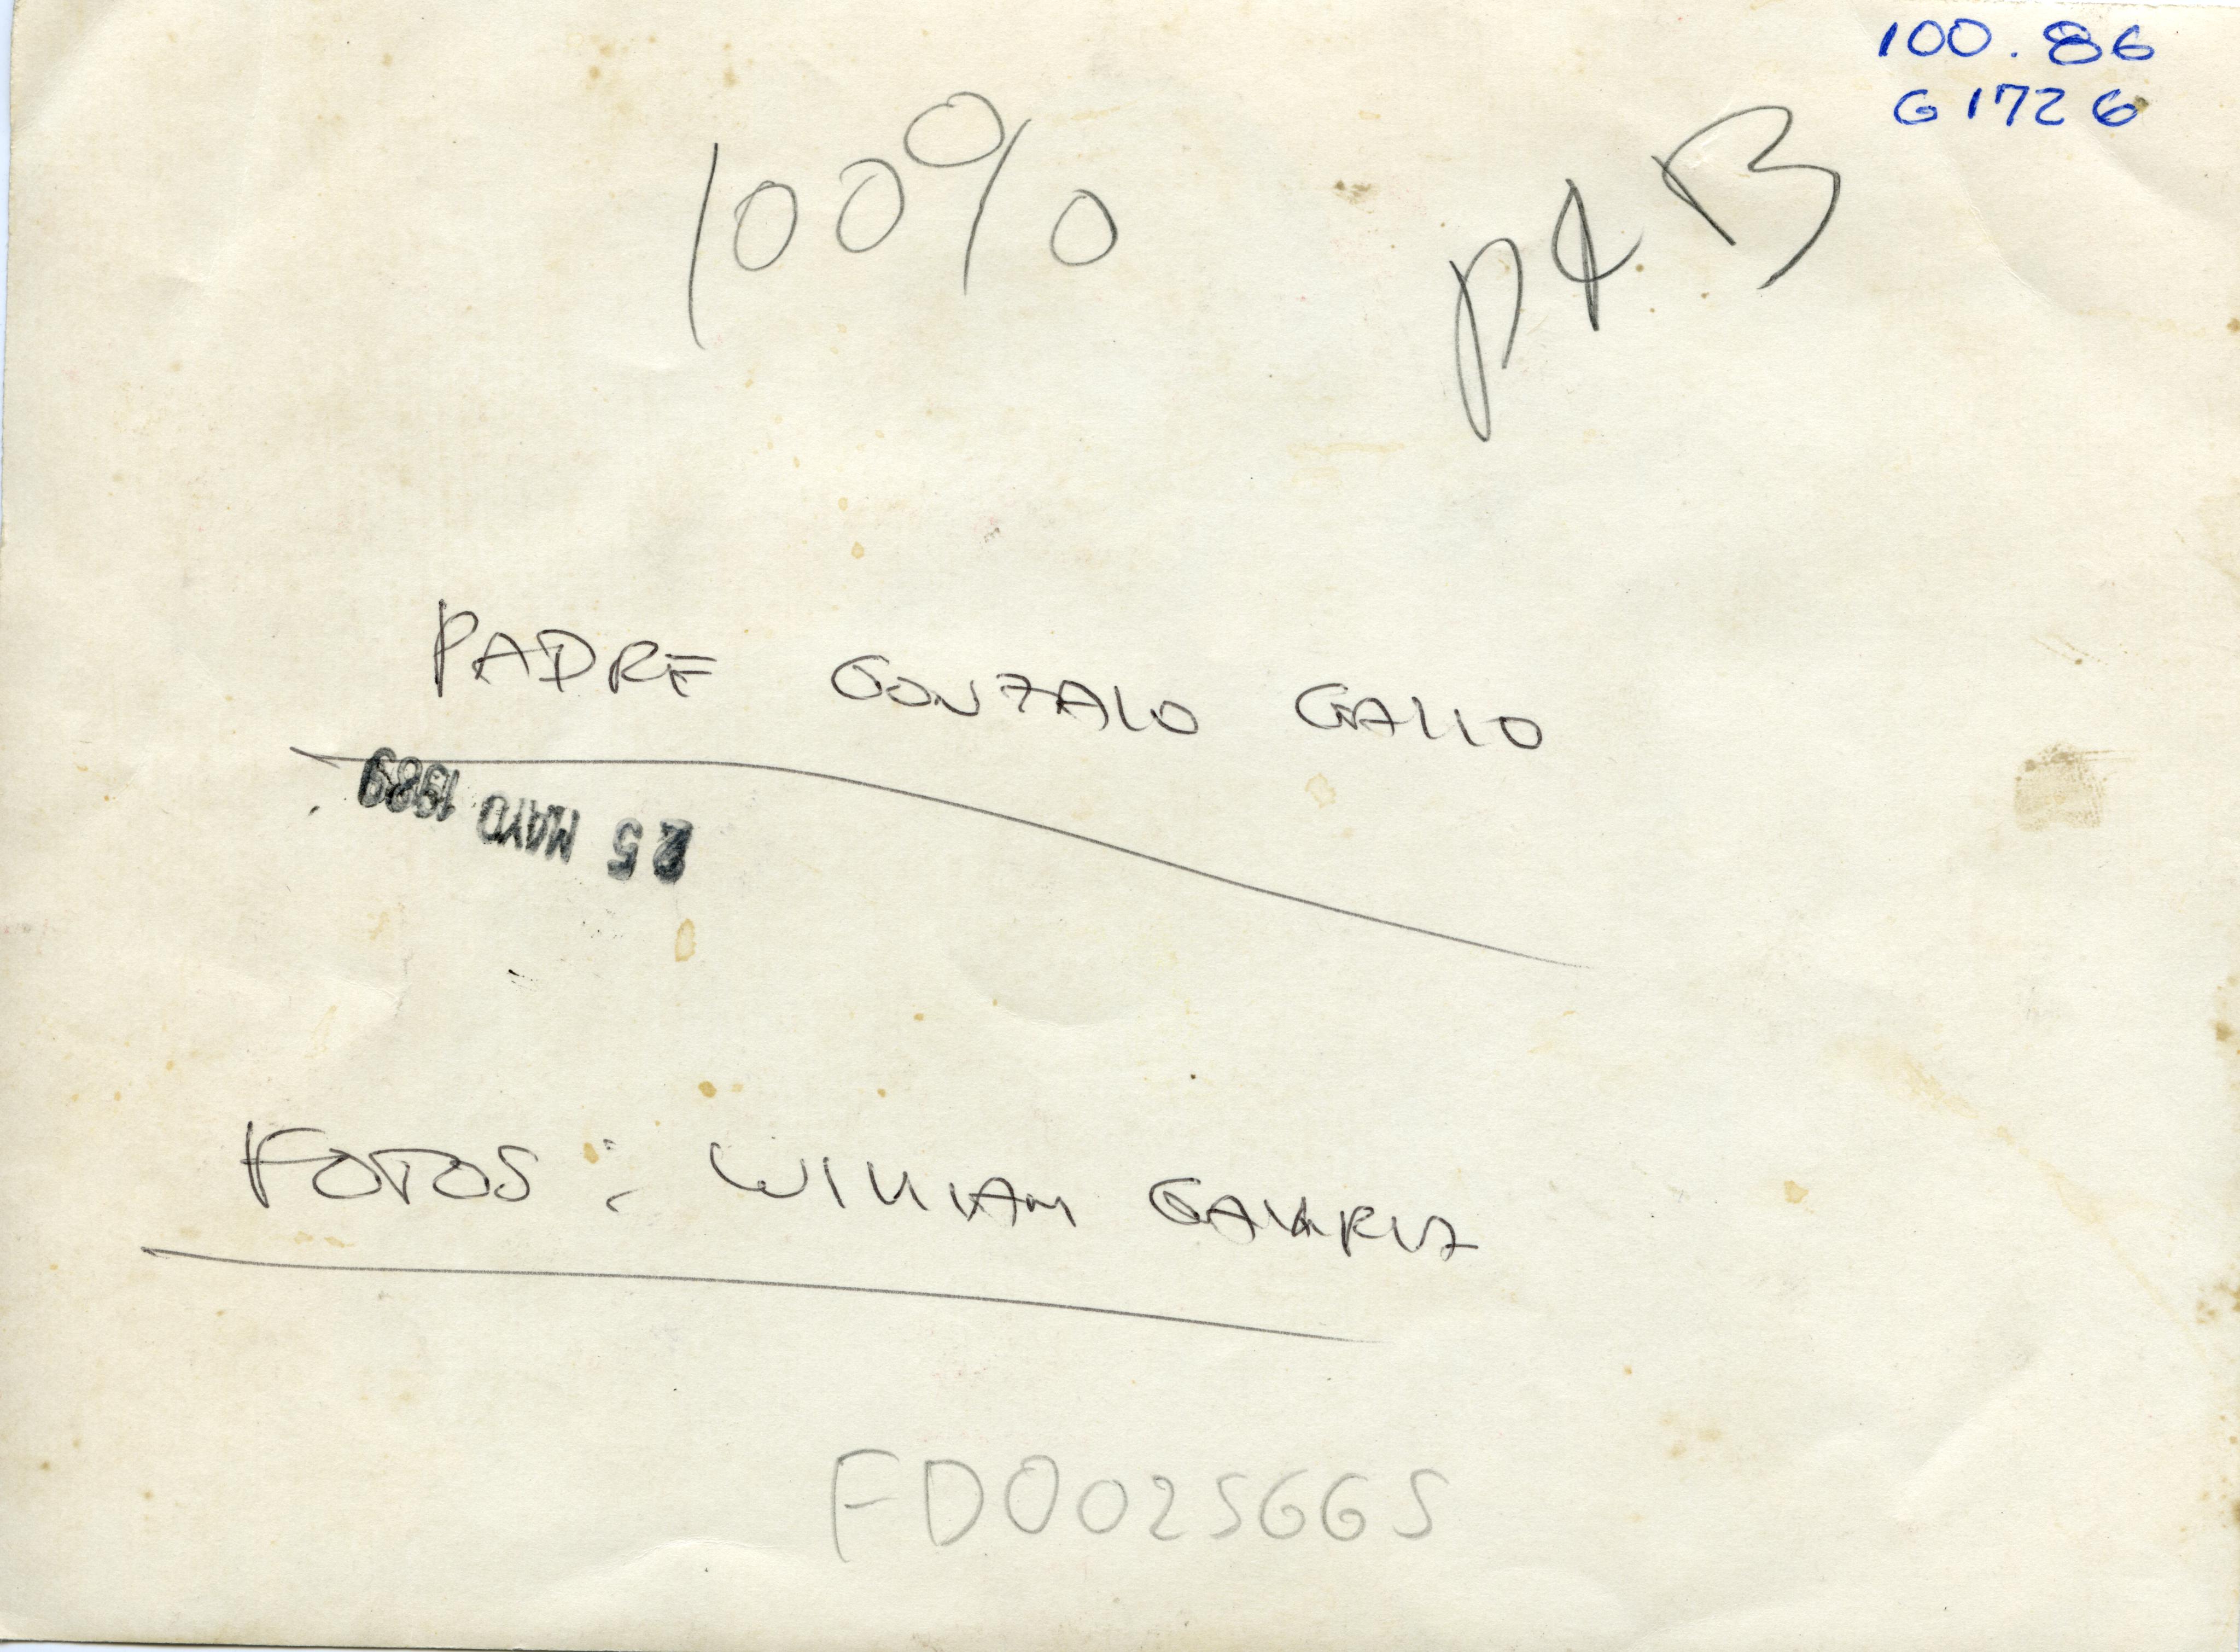 100.86
G1726
100%
P4B
PADRE GONZALO GALLO
25 MAYO 1989
FOTOS: WILLIAM GAVIRIA
FD0025665